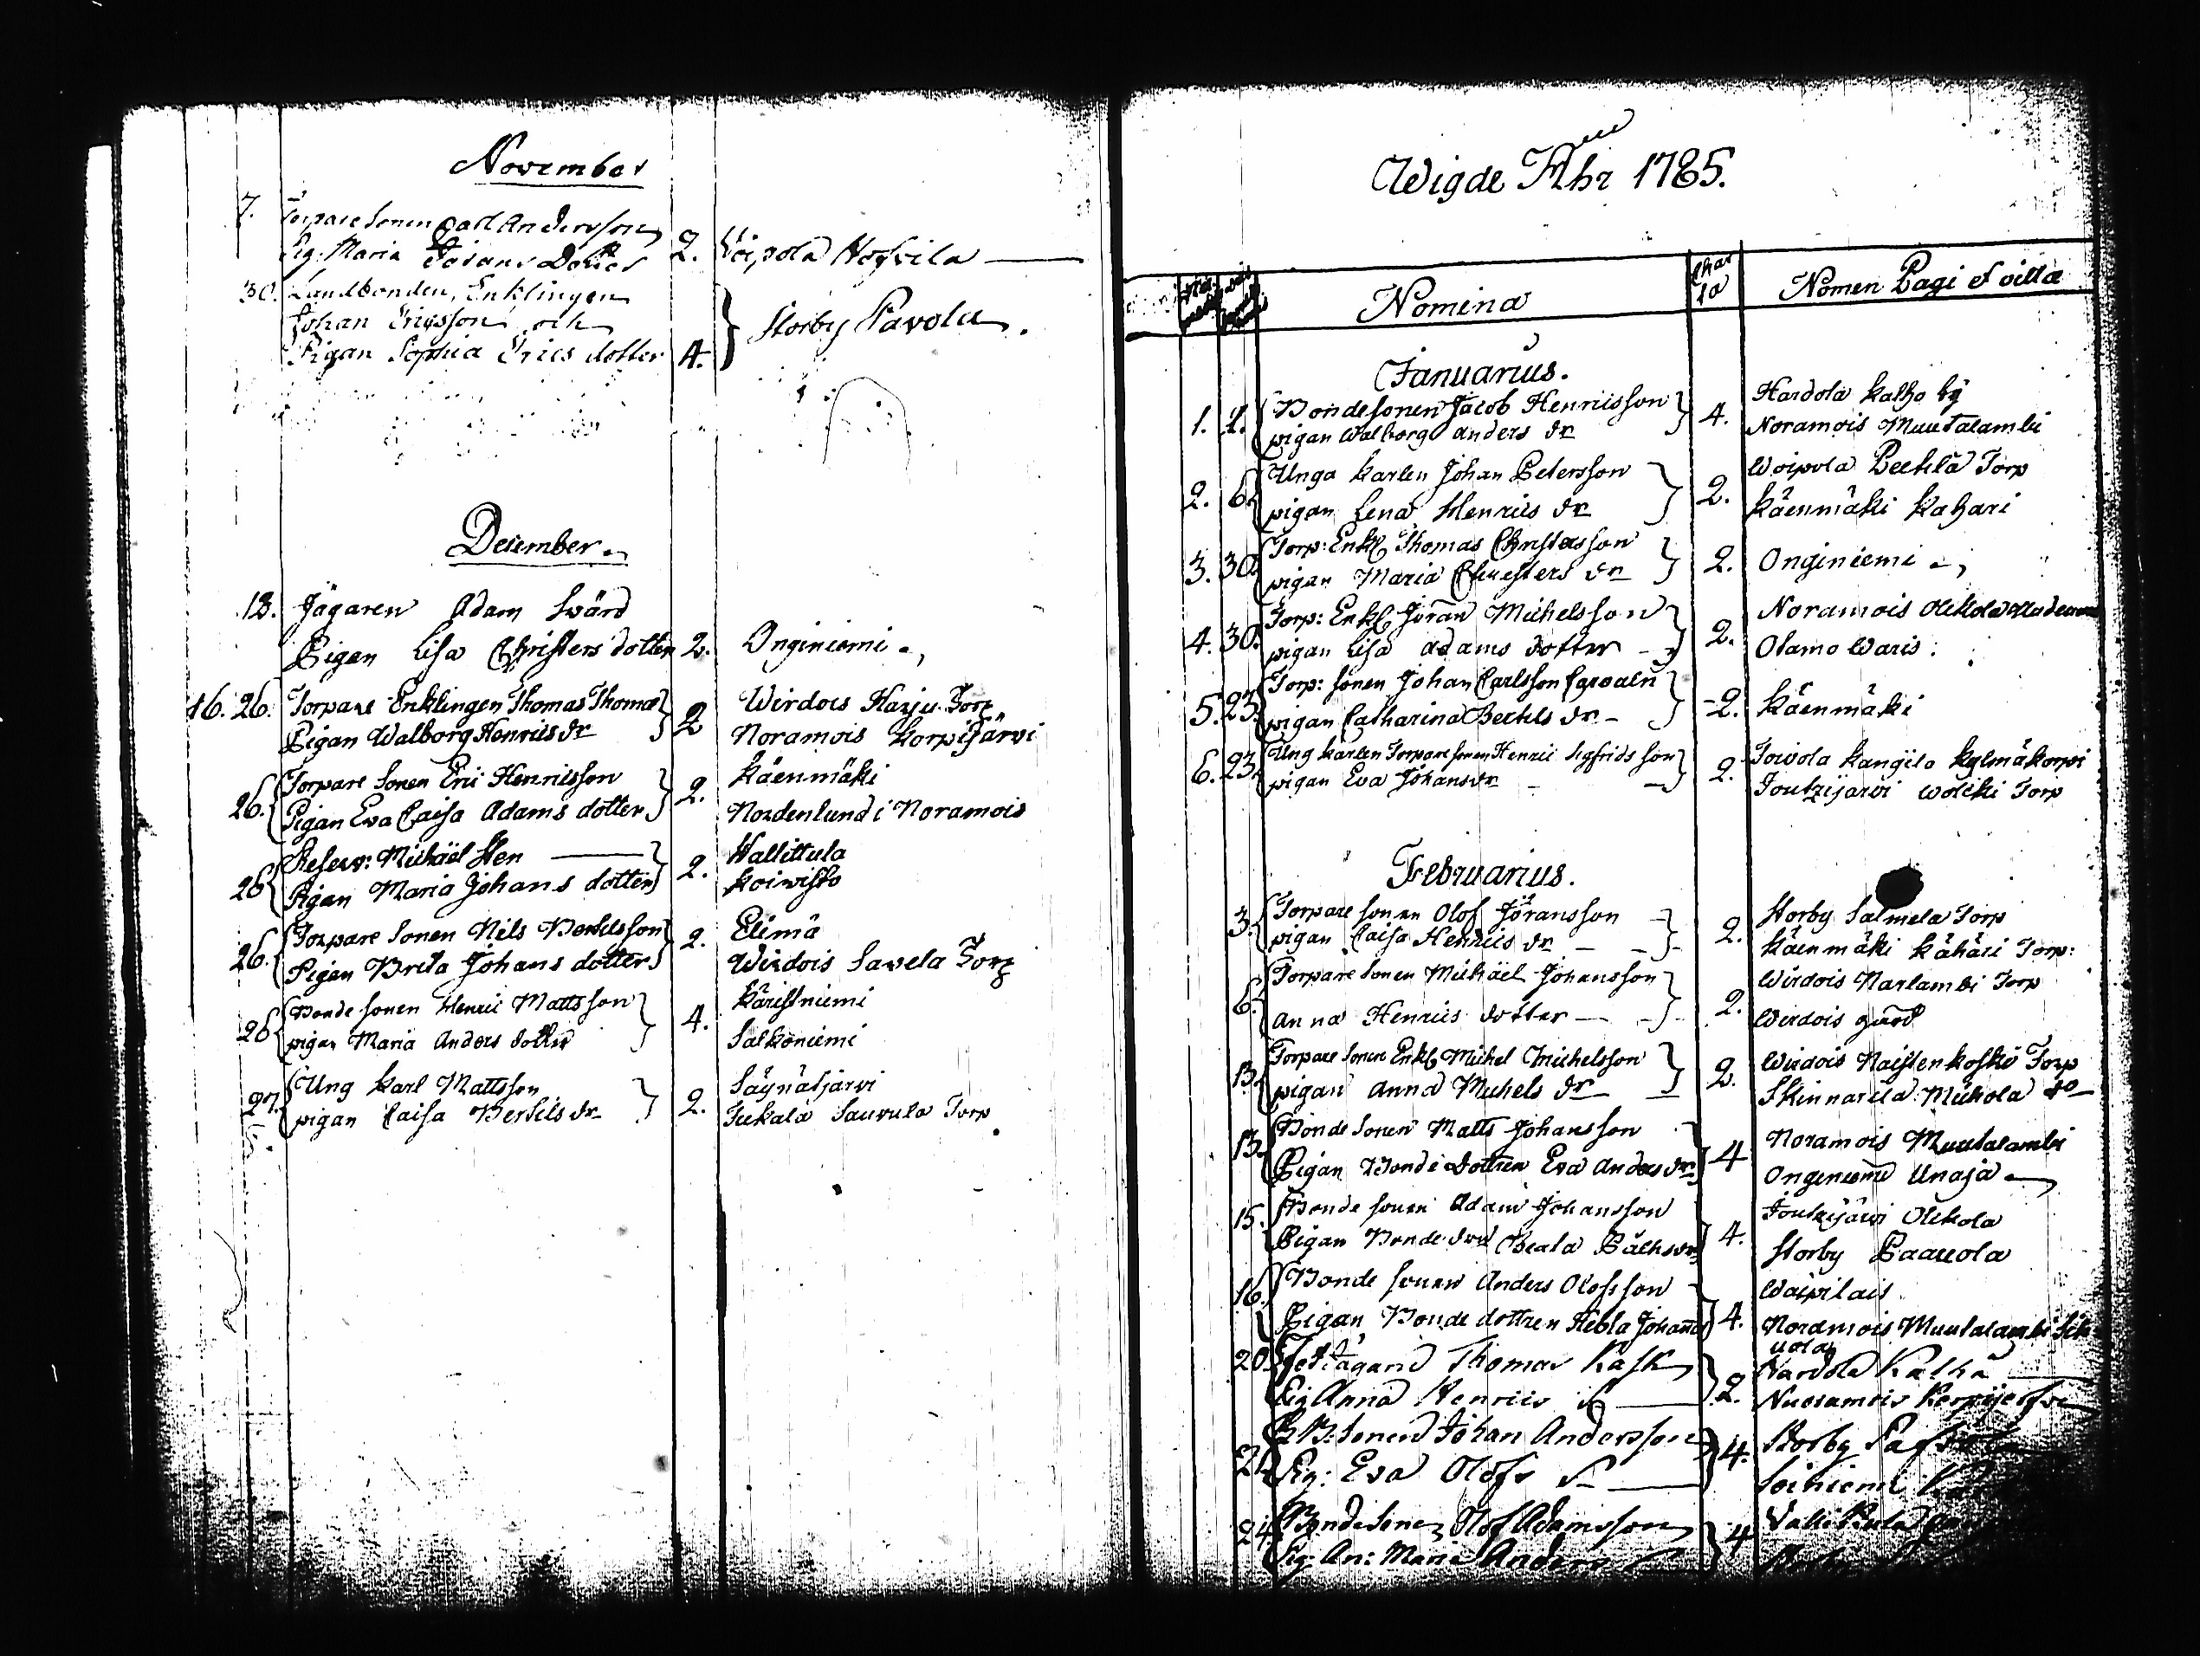 November
7. Torpare Sonen Carl Andersson
Pig: Maria Johans Dotter 2. Woipola
30. Landbonden, Enklingen
Johan Ericsson och
Pigan Sophia Erics dotter 4. Storby Pavola.
December.
13. Jägaren Adam Swärd
Pigan Lisa Christers dotter 2. Onginiemi
16. 26. Torpare Enklingen Thomas Thomas 2 Wirdois Harju Torp
Pigan Walborg Henrics dr Noramois Korpijärvi
26. Torpare Sonen Eric Henricsson 2. Käenmäki
Pigan Eva Caisa Adams dotter Nordenlund i Noramois
26 Reserv: Michäel Sten 2. Wallittula
Pigan Maria Johans dotter Koiwisto
26. Torpare Sonen Nils Bertilsson 2. Elimä
Pigan Brita Johans dotter Wirdois Savela Torp
26 Bonde Sonen Henric Mattsson 4. Käristniemi
pigan Maria Anders dotter Salkoniemi
27. Ung Karl Mattsson 2. Säynätjärvi
pigan Caisa Bertils dr Jukala Sauvula Torp
Wigde Åhr 1785.
Nomina Charta Nomen Pagi & villæ
Januarius.
1. 1. Bondesonen Jacob Henricsson 4. Hardola Kalho by
pigan Walborg Anders dr Noramois Muutalambi
2. 6. Unga Karlen Johan Petersson 2. Woipola Perhlä Torp
pigan Lena Henrics dr Käenmäki Kahari
3. 30. Torp: Enkl Thomas Christersson 2. Onginiemi
pigan Maria Christers dr
4. 30. Torp: Enkl Jöran Michelsson 2. Noramois Olikola
pigan Lisa Adams dotter Olamo Waris.
5. 23. Torp: sonen Johan Carlsson 2. Käenmäki
pigan Catharina Bertils dr
6. 23. Ung Karlen Torparesonen Henric Sigfridsson 2. Toivola Kangilo Kylmäkorpi
pigan Eva Johans dr Joutzijärvi Torp
Februarius.
3. Torpare sonen Olof Jöransson 2. Storby Salmela Torp
pigan Caisa Henrics dr Käenmäki Kähäri Torp:
6. Torpare Sonen Michäel Johansson 2. Wirdois Narlambi Torp
Anna Henrics dotter Wirdois gård
13. Torpare Sonen Enkl Michel Michelsson 2. Wirdois Naistenkoski Torp
pigan Anna Michels dr Skinnarila Mickola do
13. Bonde Sonen Matts Johansson 4 Noramois Muutalambi
Pigan Bonde dottren Eva Anders dr Onginiemi Unaja
15. Bonde sonen Adam Johansson 4. Joutzijärvi Olikola
Pigan Bonde dr Beata Påhls dr Storby Paavola
16. Bonde sonen Anders Olofsson 4. Wärpilais
Pigan Bonde dottren Hebla Johans Noramois Muutalambi
20. Thomas Kask 2. Hardola Kalho
Pig Anna Henrics Nuoramois Korpijerfvi
Sonen Johan Andersson 4. Storby
Pig: Eva Olofs
24 Bondesonen Olof Adamsson 4
Pig: An: Maria Anders